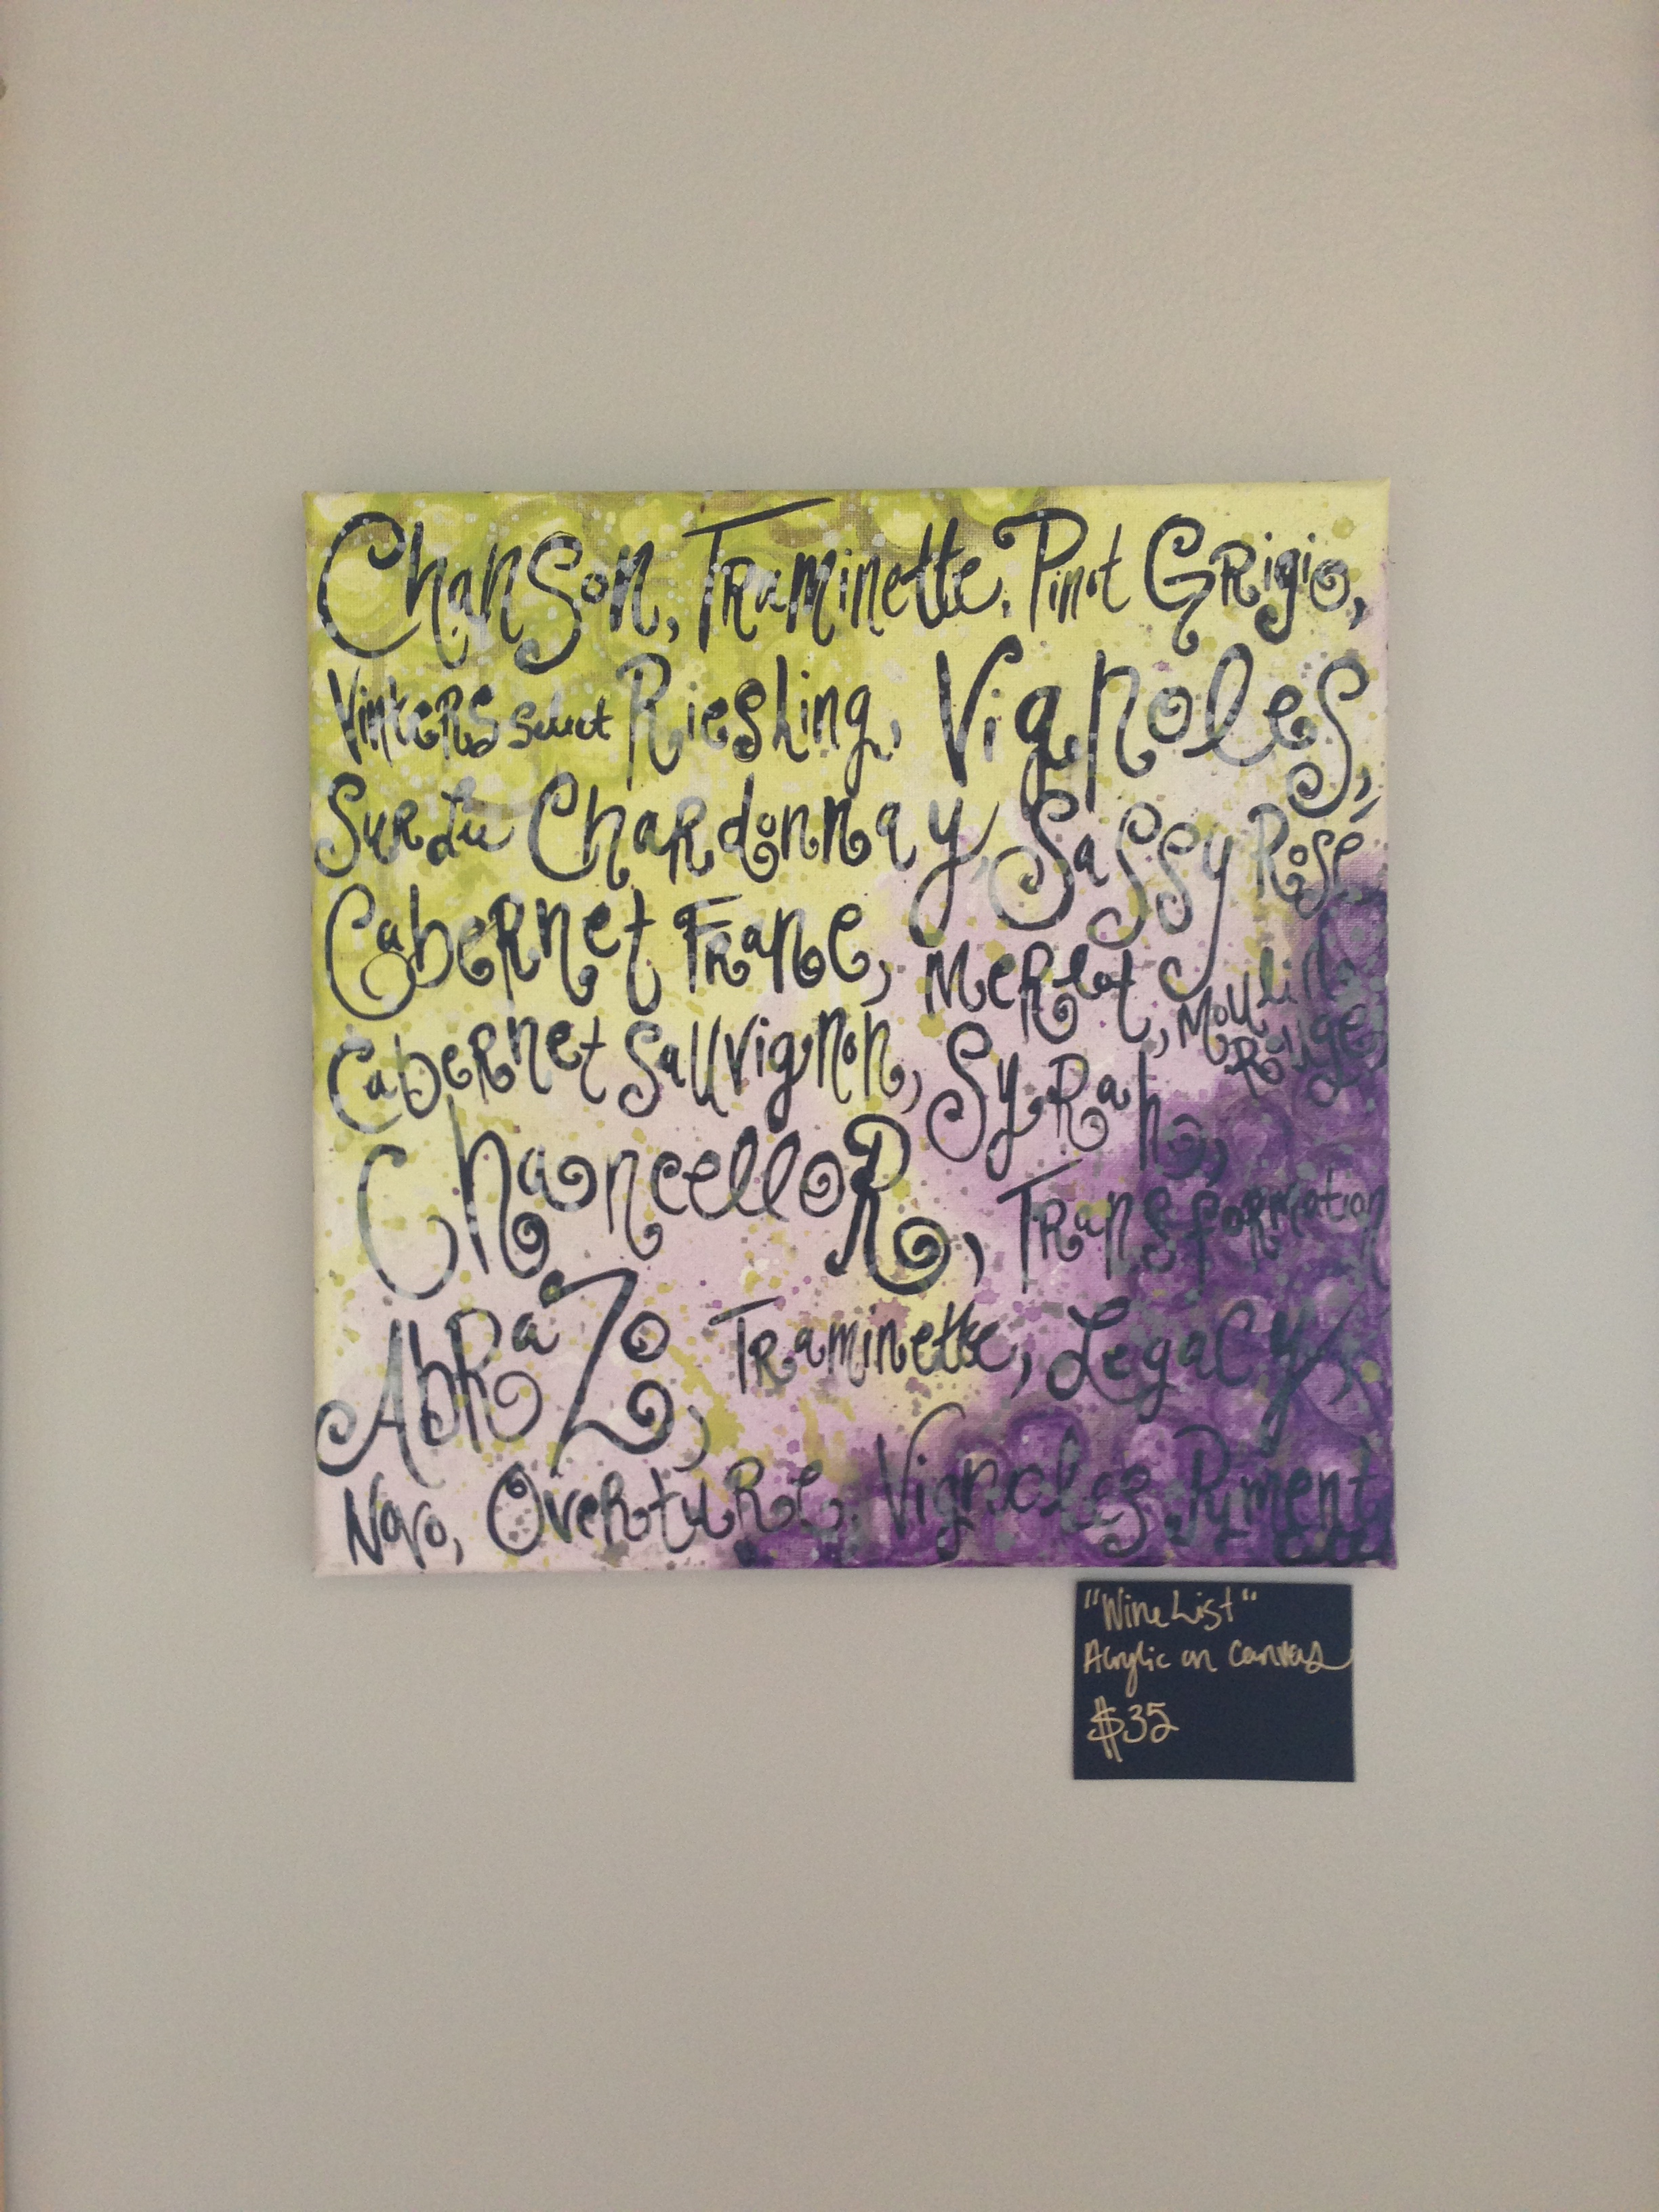 Chanson, Traminette, Pinot Grigio,
Vinters select Riesling, Vignoles,
Sur Lie Chardonnay, Sassy Rosé
Cabernet Franc, Merlot, Moulin Rouge,
Cabernet Sauvignon, Syrah,
Chancellor, Transformation
Abrazo, Traminette, Legacy,
Novo, Overture, Vignoles, Pyment
"Wine List"
Acrylic on Canvas
$35